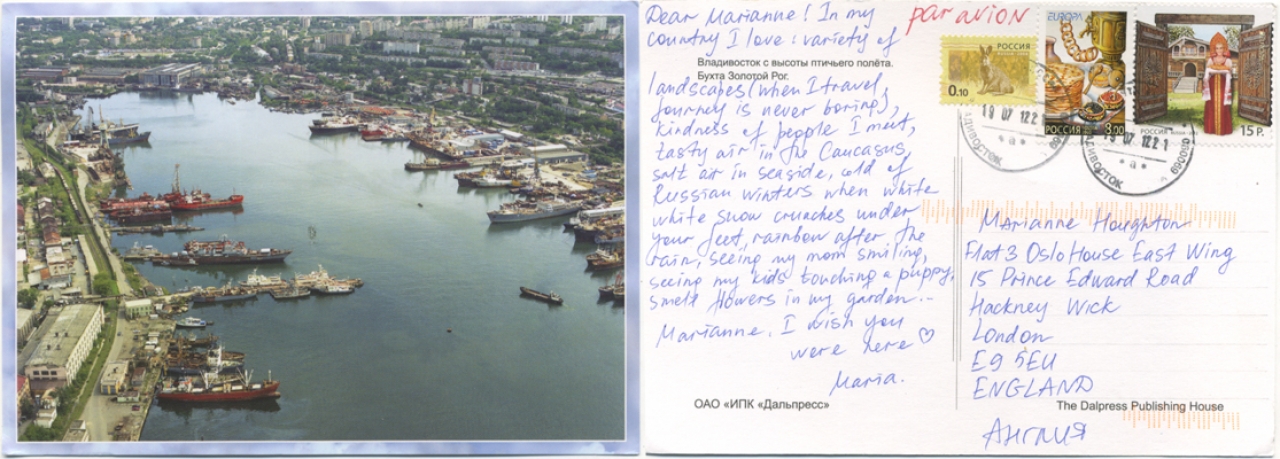 Dear Marianne! In my
country I love: variety of
landscapes (when I travel,
journey is never boring),
kindness of people I meet,
tasty air in the Caucasus,
salt air in seaside, cold of
Russian winters when white
white snow crunches under
your feet, rainbow after the
rain, seeing my mom smiling,
seeing my kids touching a puppy,
smell flowers in my garden...
Marianne, I wish you
were here ♡
Maria.
Владивосток с высоты птичьего полёта.
Бухта Золотой Рог.
ОАО «ИПК «Дальпресс»
par avion
РОССИЯ
0.10
EUROPA
РОССИЯ 8.00
РОССИЯ
15 Р.
19 07 12 21
ВЛАДИВОСТОК
19 07 12 21
ВЛАДИВОСТОК 690090
Marianne Houghton
Flat 3 Oslo House East Wing
15 Prince Edward Road
Hackney Wick
London
E9 5EU
ENGLAND
The Dalpress Publishing House
Англия